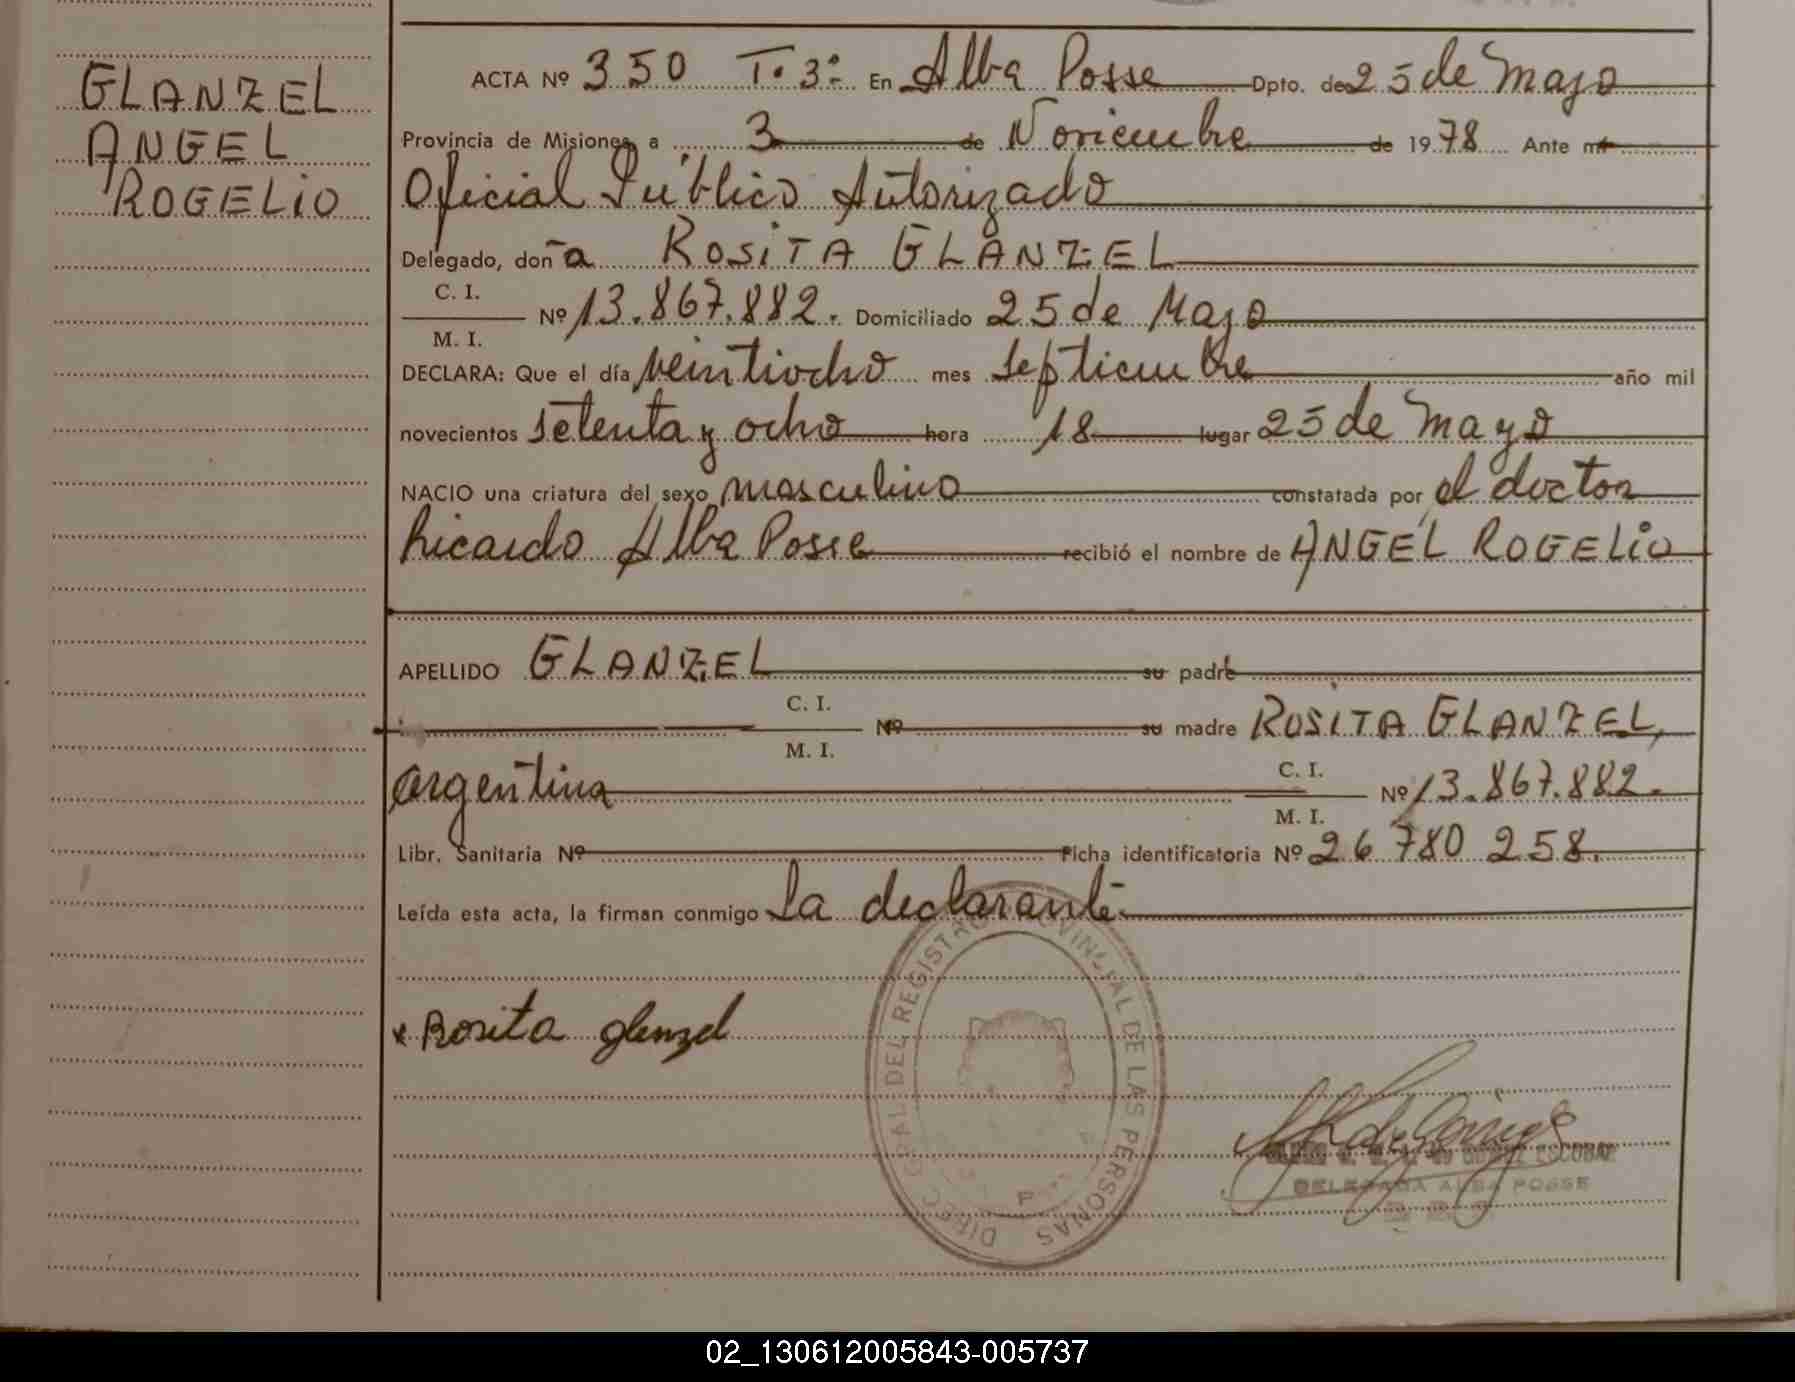 GLANZEL
ANGEL
ROGELIO
ACTA Nº 350 T. 3º En Alba Posse Dpto. de 25 de Mayo
Provincia de Misiones, a 3 de Noviembre de 1978 Ante mí
Oficial Público Autorizado
Delegado, doña ROSITA GLANZEL
C. I.
M. I.
Nº 13.867.882. Domiciliado 25 de Mayo
DECLARA: Que el día veintiocho mes septiembre año mil
novecientos setenta y ocho hora 18 lugar 25 de Mayo
NACIO una criatura del sexo masculino constatada por el doctor
Ricardo Alba Posse recibió el nombre de ANGEL ROGELIO
APELLIDO GLANZEL su padre
C. I.
M. I.
Nº su madre ROSITA GLANZEL,
argentina C. I.
M. I.
Nº 13.867.882.
Libr. Sanitaria Nº Ficha identificatoria Nº 26 780 258.
Leída esta acta, la firman conmigo la declarante
x Rosita glenzel
DIREC. GRAL DEL REGISTRO PROVINCIAL DE LAS PERSONAS
ESCOBAR
DELEGADA ALBA POSSE
02_130612005843-005737